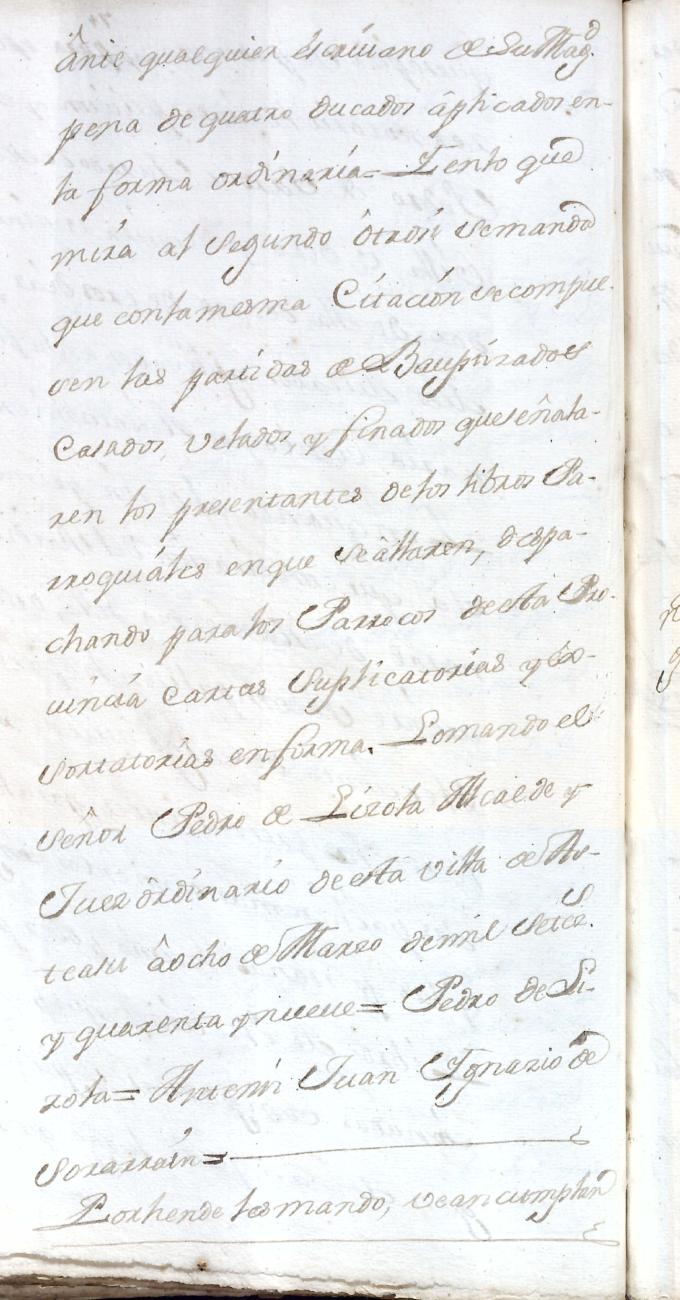 ânte qualquier escriuano de Su Magd.
pena de quatro ducados âplicados en-
la forma ordinaria= Tento que
mira al segundo ôtrosi se manda
que con la mesma Citación se compue-
uen las partidas de Bauptizados
Casados, velados, y finados que señala-
ren los presentantes de los libros Pa-
rroquiáles en que se âllaren, despa-
chando para los Parrocos de esta Pro-
uincia Cartas Suplicatorias y êx-
sortatorias en forma. Lo mando el
señor Pedro de Lizola Alcalde y
Juez ôrdinario de esta villa de As-
teasu âocho de Marzo de mil Setecs.
y quarenta y nueue= Pedro de Li-
zola= Antemi Juan Ignazio de
Sorarrain=
Porhende les mando, vean cumplan